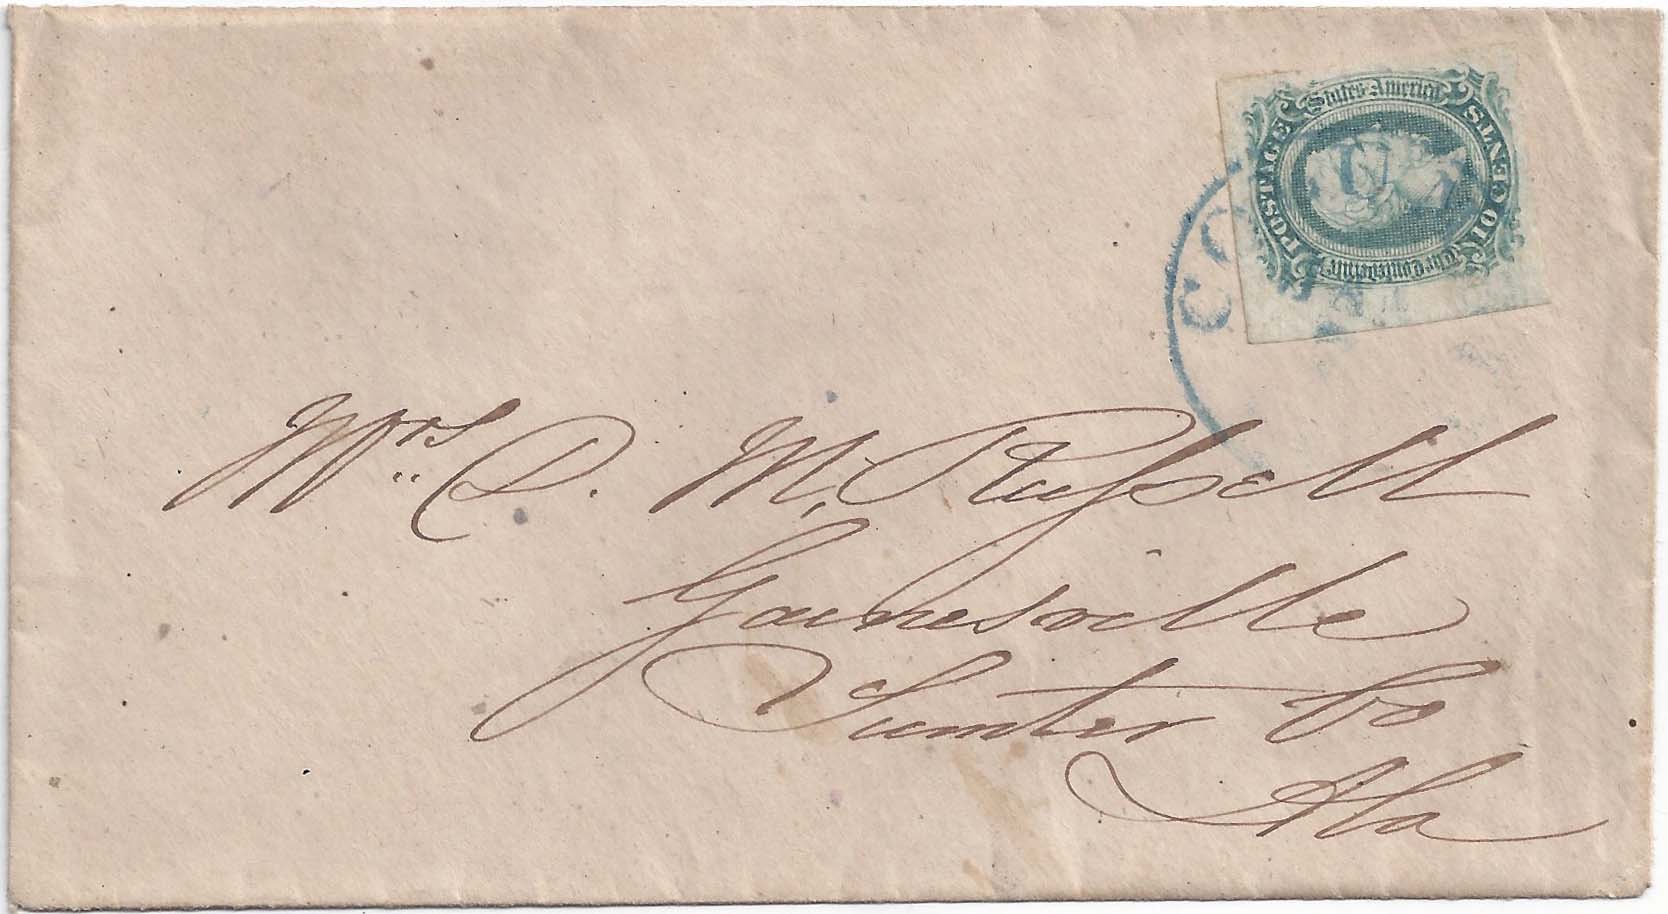 The Confederate
States America
POSTAGE
TEN CENTS
CO
Mrs. D. M. Russell
Gainesville
Sumter Co
Ala